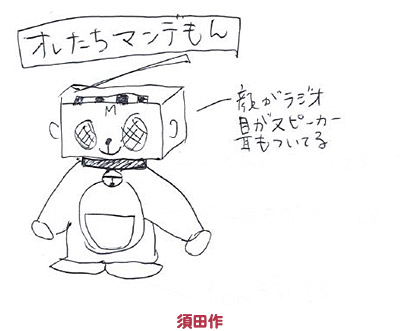 オレたちマンデもん
M
顔がラジオ
目がスピーカー
耳もついてる
須田作